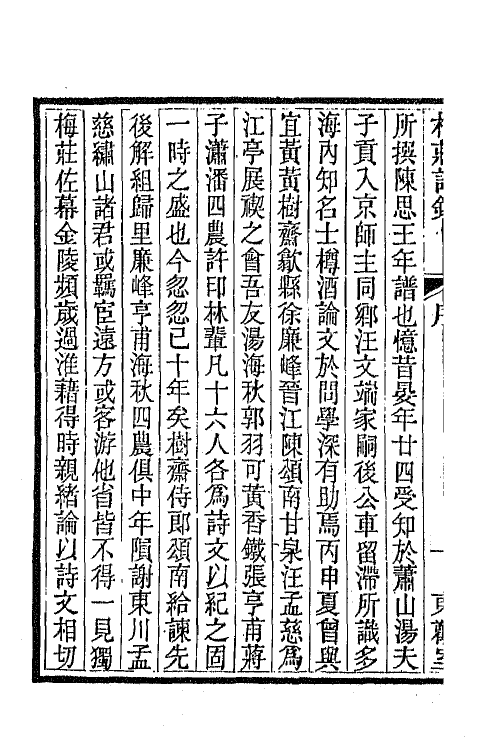 所撰陳思王年譜也憶昔晏年廿四受知於蕭山湯夫
子貢入京師主同鄉汪文端家嗣後公車留滯所識多
海內知名士樽酒論文於問學深有助焉丙申夏曾與
宜黃黃樹齋歙縣徐廉峰晉江陳頌南甘泉汪孟慈為
江亭展禊之會吾友湯海秋郭羽可黃香鐵張亨甫蔣
子瀟潘四農許印林輩凡十六人各爲詩文以紀之固
一時之盛也今忽忽已十年矣樹齋侍郎頌南給諫先
後解組歸里廉峰亨甫海秋四農俱中年隕謝東川孟
慈繡山諸君或羈宦遠方或客游他省皆不得一見獨
梅莊佐幕金陵頻歲過淮藉得時親緒論以詩文相切